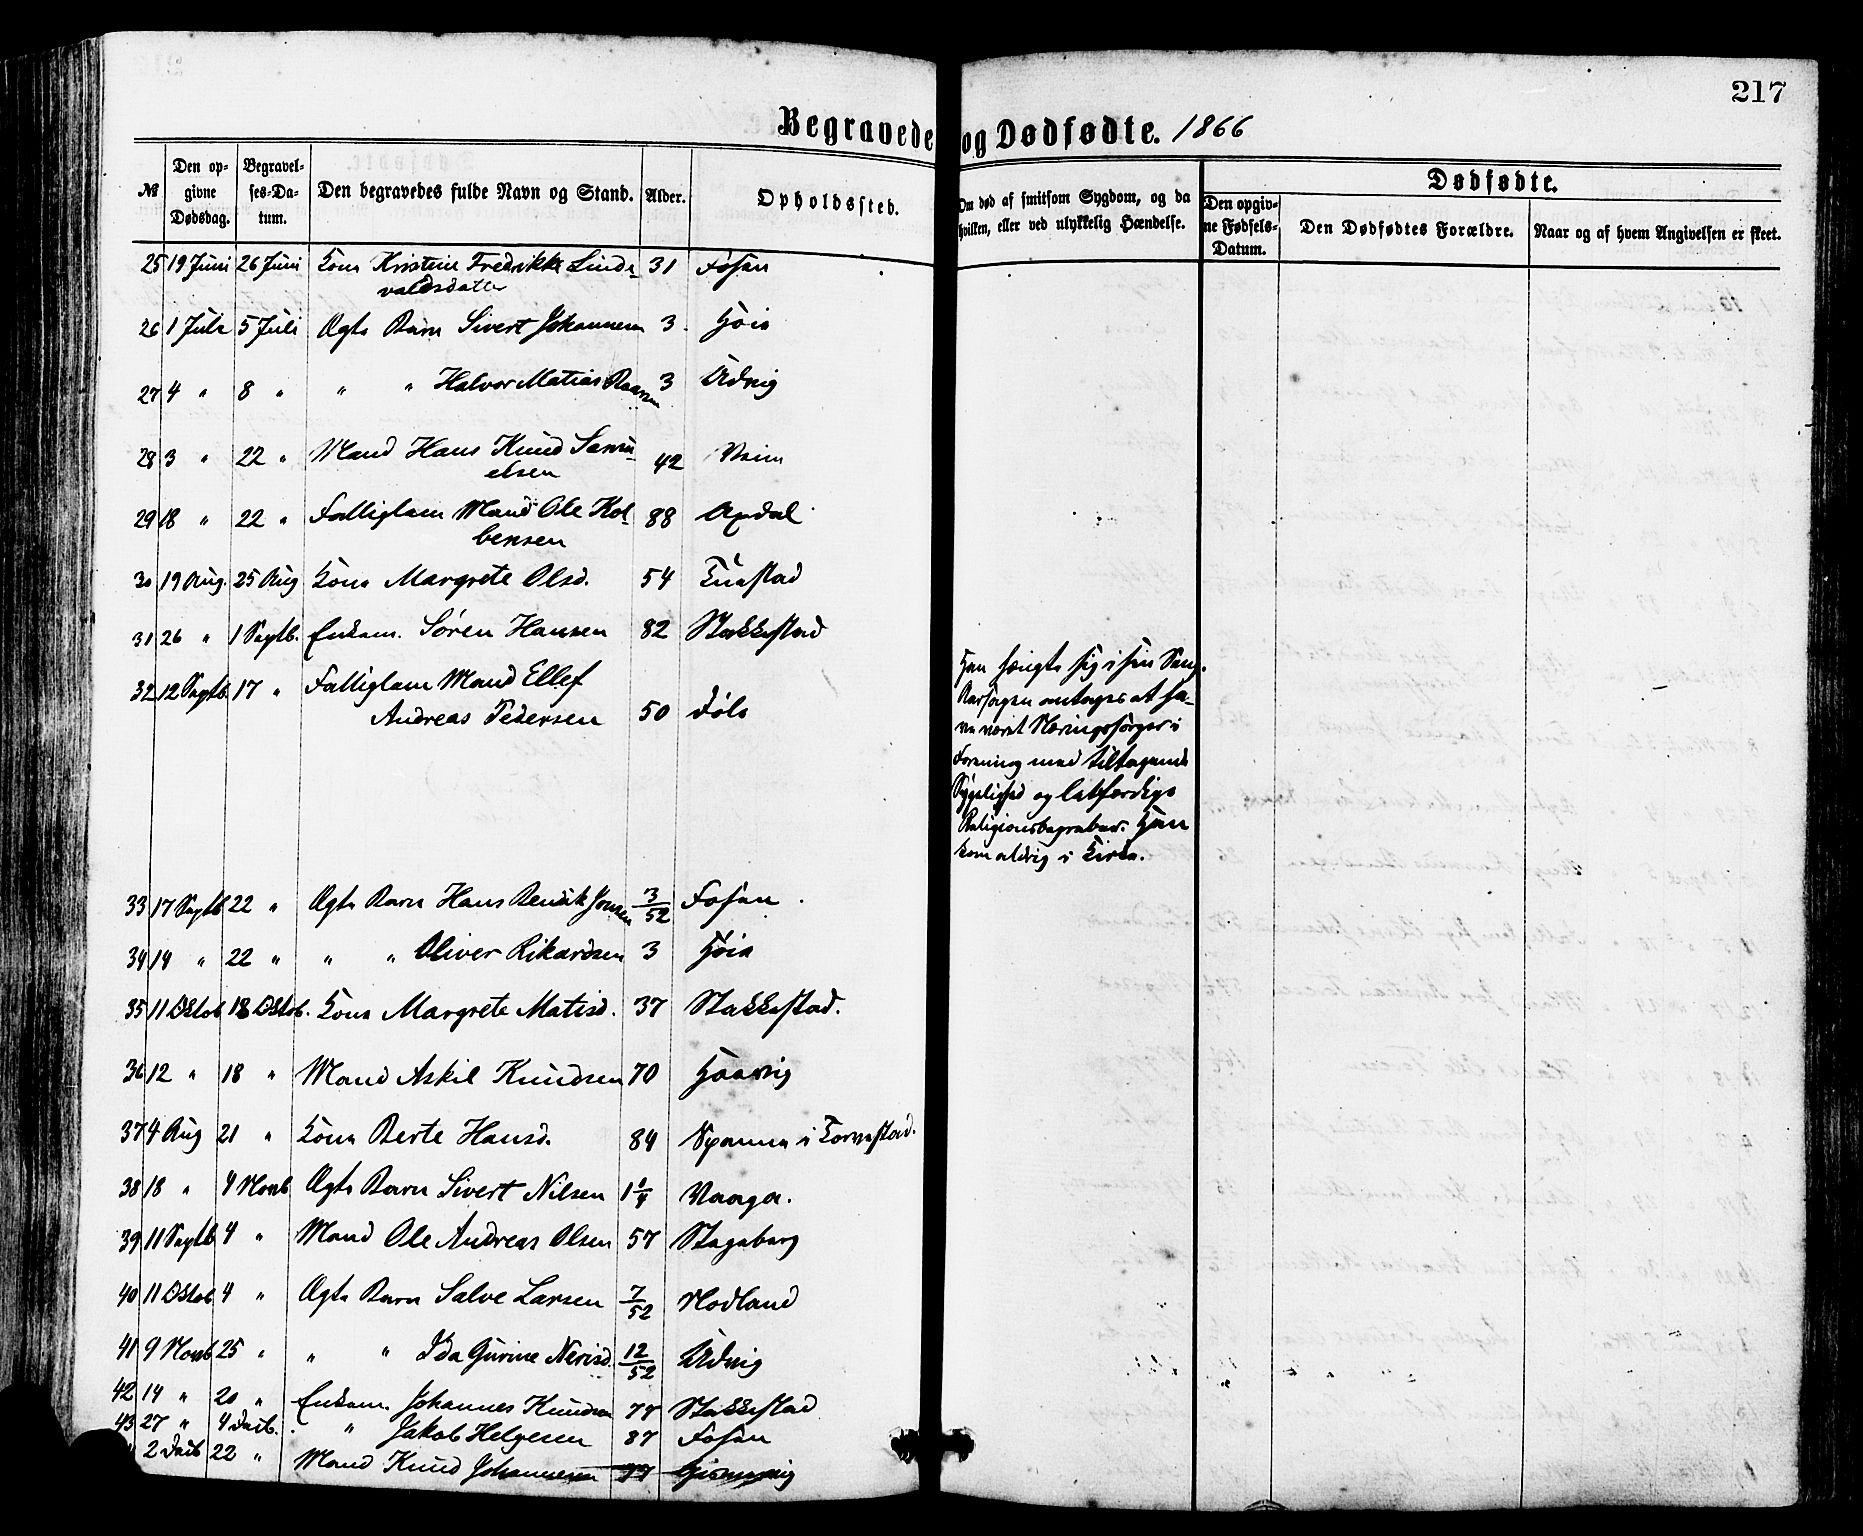 217
Begravede og Dødfødte. 1866
№ | Den opgivne Dødsdag. | Begravelses-Datum. | Den begravedes fulde Navn og Stand. | Alder. | Opholdssted. | Om død af smitsom Sygdom, og da hvilken, eller ved ulykkelig Hændelse. | Dødfødte.
Den opgivne Fødsels-Datum. | Den Dødfødtes Forældre. | Naar og af hvem Angivelsen er skeet.
25 19 Juni 26 Juni Kone Kristine Fredrikke Lind- 31 Fosen
valdsdatter
26 1 Juli 5 Juli Ægte Barn Sivert Johannesen 3 Høie
27 4 " 8 " " " Halvor Matias 3 Udvig
28 3 " 22 " Mand Hans Knud Samu- 42
elsen
29 18 " 22 " Fattiglem Mand Ole Kol- 88
bensen
30 19 Aug. 25 Aug Kone Margrete Olsd. 54 Tuastad
31 26 " 1 Septb. Enkem. Søren Hansen 82 Stakkestad
32 12 Septb. 17 " Fattiglem Mand Ellef
Andreas Pedersen 50
Han hængte sig i sin Seng.
Aarsagen antages at ha-
ve været Næringssorger i
Forening med tiltagende
Sygelighed og letfærdige
Religionsbegreber. Han
kom aldrig i Kirke.
33 17 Septb 22 " Ægte Barn Hans Bendik Jonsen 3/52 Fosen
34 14 " 22 " " " Oliver Rikardsen 3 Høie
35 11 Oktob 18 Oktob. Kone Margrete Matisd. 37 Stakkestad.
36 12 " 18 " Mand Askil Knudsen 70 Haavig
37 4 Aug 21 " Kone Berte Hansd. 84 Spanne i Torvestad.
38 18 " 4 Novb Ægte Barn Sivert Nilsen 1 1/4 Vaage.
39 11 Septb 4 " Mand Ole Andreas Olsen 57 Stegaberg
40 11 Oktob 4 " Ægte Barn Salve Larsen 7/52 Nodland
41 9 Novb 25 " " " Ida Gurine Nerisd. 12/52 Udvig
42 14 " 20 " Enkem. Johannes Knudsen 77 Stakkestad
43 27 " 4 Decb. " Jakob Helgesen 87 Fosen
2 Decb 22 " Mand Knud Johannesen 77